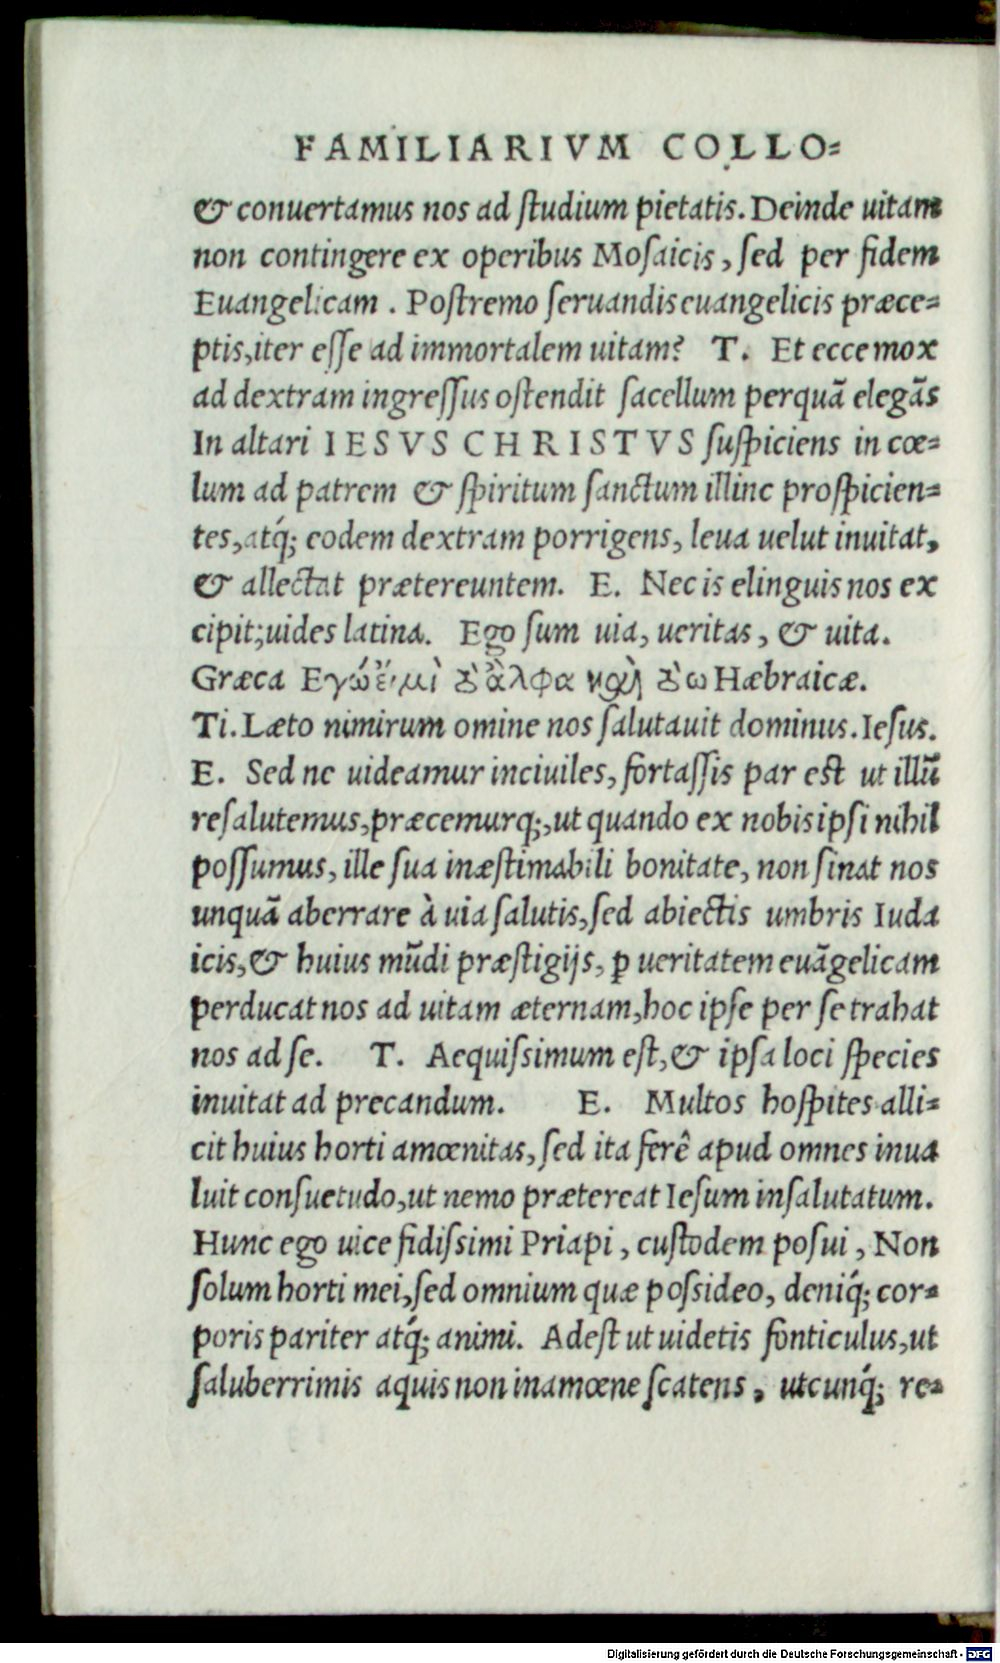 FAMILIARIVM COLLO-
& conuertamus nos ad ſtudium pietatis. Deinde uitam
non contingere ex operibus Moſaicis, ſed per fidem
Euangelicam . Poſtremo ſeruandis euangelicis præce-
ptis, iter eſſe ad immortalem uitam? T. Et ecce mox
ad dextram ingreſſus oſtendit ſacellum perquã elegãs
In altari IESVS CHRISTVS ſuſpiciens in cœ-
lum ad patrem & ſpiritum ſanctum illinc proſpicien-
tes, atq́; eodem dextram porrigens, leua uelut inuitat,
& allectat prætereuntem. E. Nec is elinguis nos ex
cipit; uides latina. Ego ſum uia, ueritas, & uita.
Græca Εγώ ἔιμὶ ὁ ἄλφα καὶ ὁ ω Hæbraicæ.
Ti. Læto nimirum omine nos ſalutauit dominus. Ieſus.
E. Sed ne uideamur inciuiles, fortaſſis par eſt ut illũ
reſalutemus, præcemurq;, ut quando ex nobis ipſi nihil
poſſumus, ille ſua inæſtimabili bonitate, non ſinat nos
unquã aberrare à uia ſalutis, ſed abiectis umbris Iuda
icis, & huius mũdi præſtigijs, ꝑ ueritatem euãgelicam
perducat nos ad uitam æternam, hoc ipſe per ſe trahat
nos ad ſe. T. Aequiſsimum eſt, & ipſa loci ſpecies
inuitat ad precandum. E. Multos hoſpites alli-
cit huius horti amœnitas, ſed ita ferê apud omnes inua
luit conſuetudo, ut nemo prætereat Ieſum inſalutatum.
Hunc ego uice fidiſsimi Priapi, cuſtodem poſui, Non
ſolum horti mei, ſed omnium quæ poſsideo, deniq́; cor-
poris pariter atq́; animi. Adeſt ut uidetis fonticulus, ut
ſaluberrimis aquis non inamœne ſcatens, utcunq́; re-
Digitalisierung gefördert durch die Deutsche Forschungsgemeinschaft - DFG